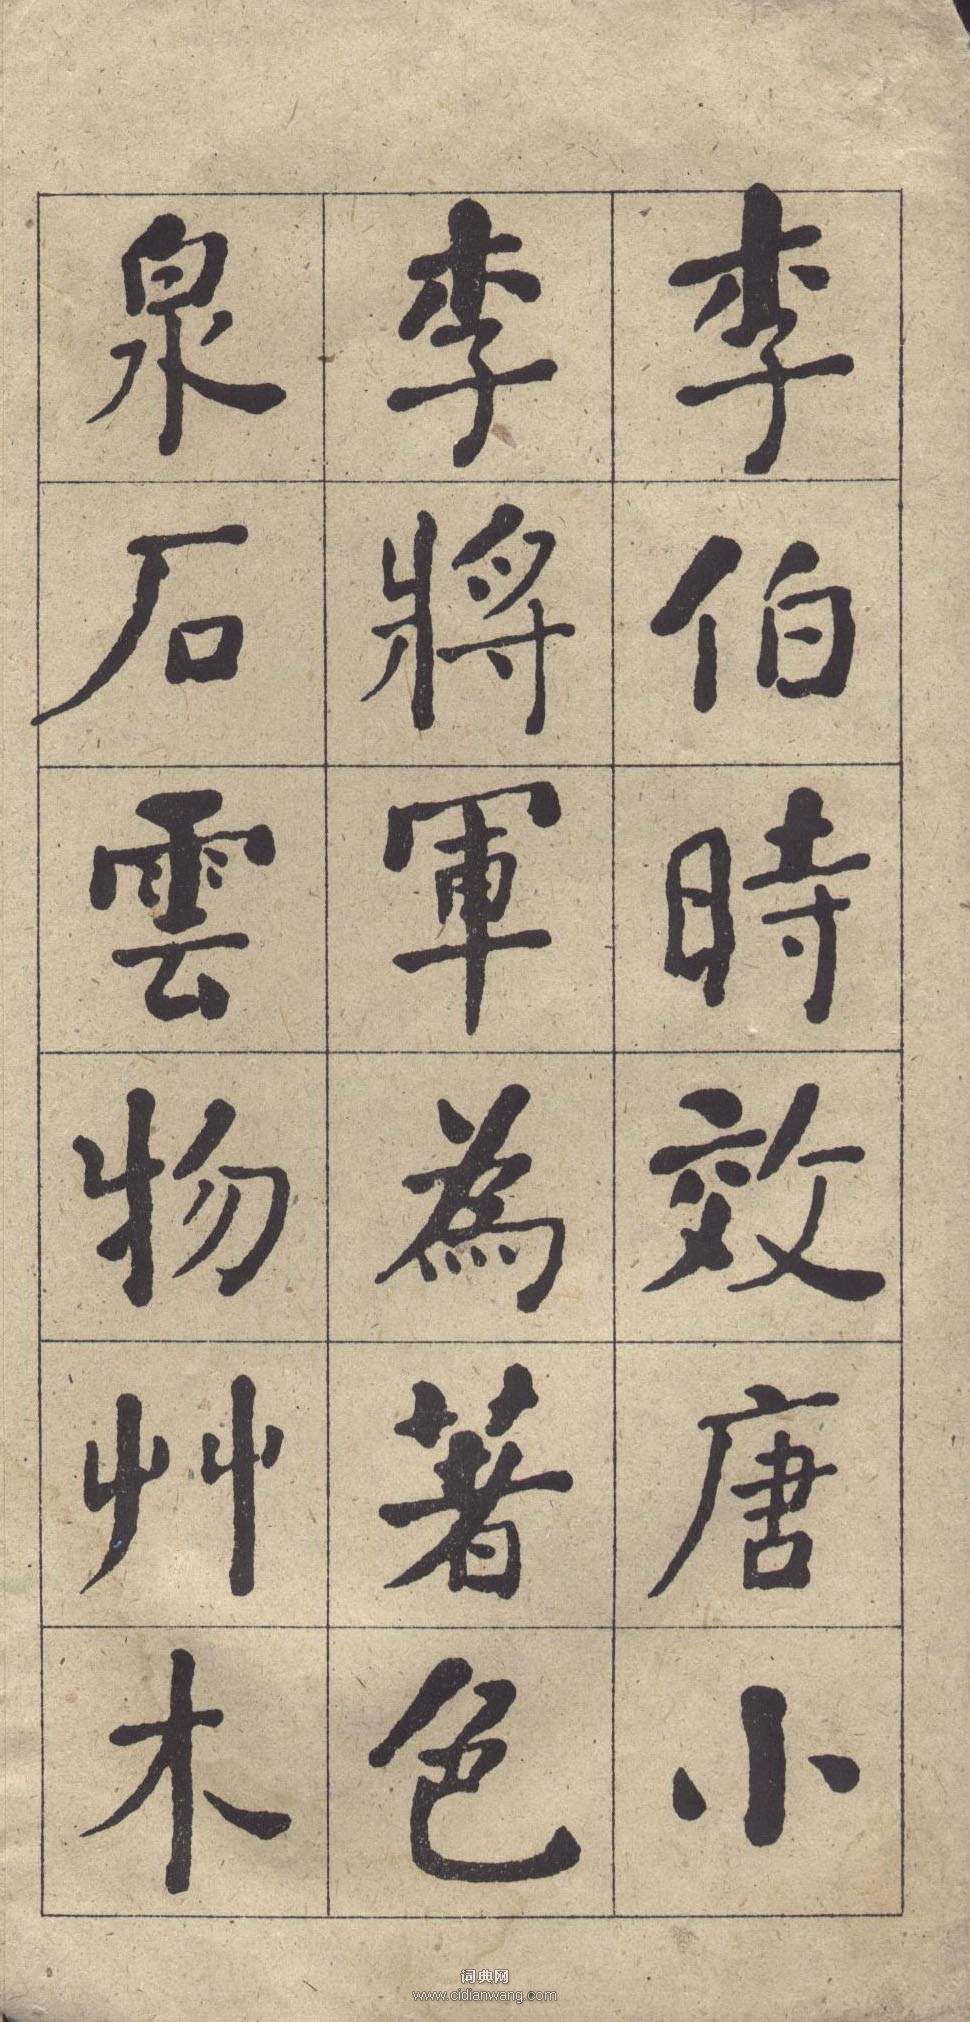 李伯時效唐小
李將軍為著色
泉石雲物艸木
词典网
www.cidianwang.com